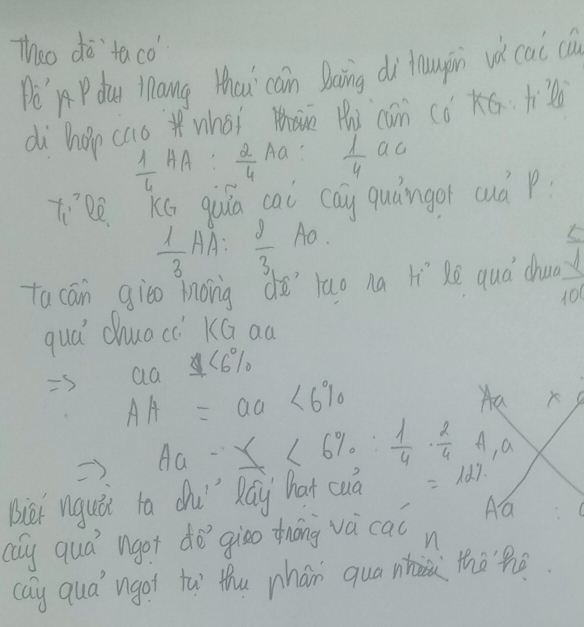 Theo đề ta có
Để P đạt trạng thái cân bằng di truyền và các cây
dị hợp cao nhất thì cần có KG tỉ lệ
1/4 AA : 2/4 Aa : 1/4 aa
Tỉ lệ KG giữa các cây quả ngọt của P :
1/3 AA : 2/3 Aa.
Ta cần gieo trồng để tạo ra tỉ lệ quả chua
quả chua có KG aa
=> aa <6%
AA = aa <6%
=> Aa < 6% : 1/4 . 2/4 A, a
= 12%
Aa x
Aa :
Biết người ta chỉ lấy hạt của
cây quả ngọt để gieo trồng và các
cây quả ngọt tự thụ phấn qua n thế hệ.